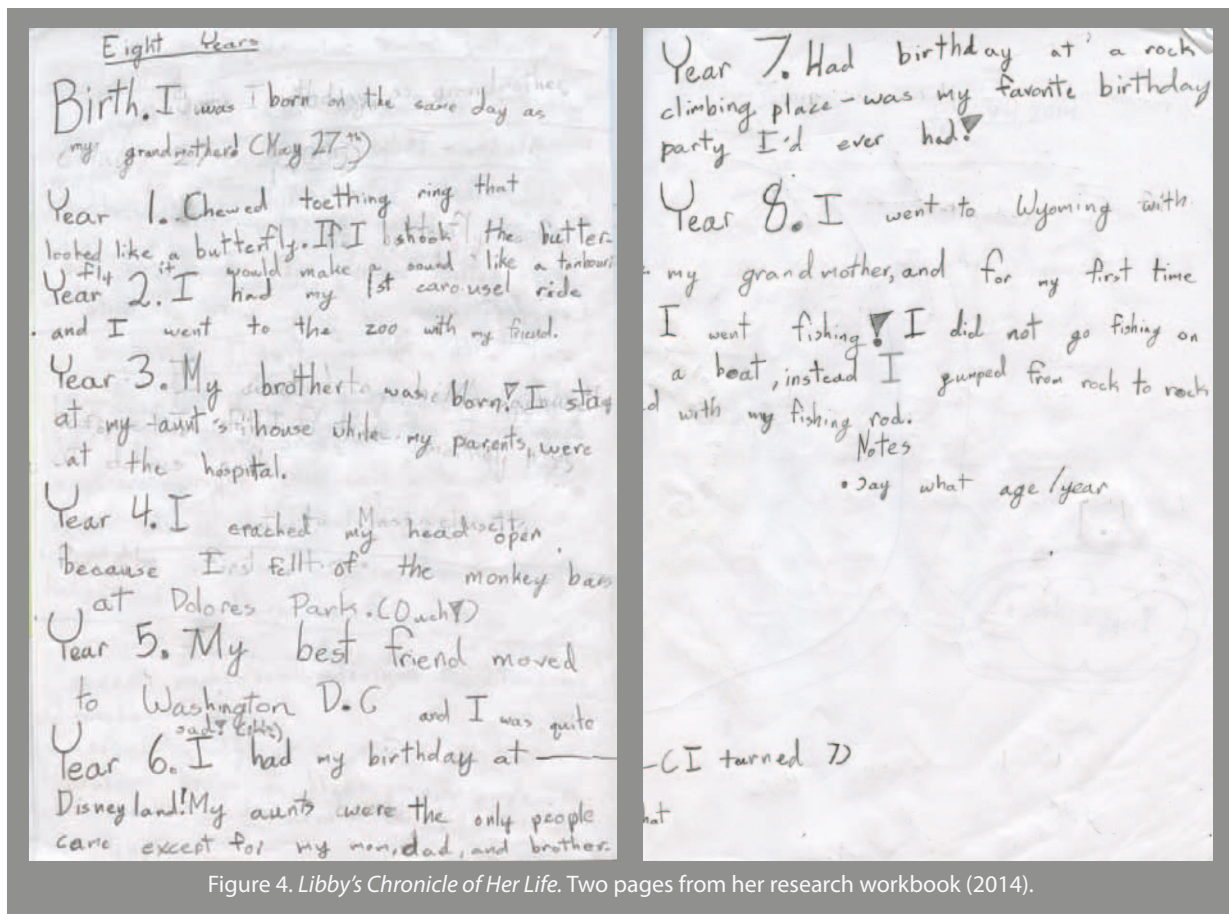 Eight Years
Birth. I was born on the same day as
my grandmother! (May 27th)
Year 1. Chewed teething ring that
looked like a butterfly. If I shook the butter-
fly it would make a sound like a
Year 2. I had my 1st carousel ride
and I went to the zoo with my friend.
Year 3. My brother was born! I stay
at my aunt's house while my parents were
at the hospital.
Year 4. I cracked my head open
because I fell of the monkey bars
at Dolores Park. (Ouch!)
Year 5. My best friend moved
to Washington D.C and I was quite
sad!
Year 6. I had my birthday at
Disneyland! My aunts were the only people
came except for my mom, dad, and brother.
Year 7. Had birthday at a rock
climbing place - was my favorite birthday
party I'd ever had!
Year 8. I went to Wyoming with
my grandmother, and for my first time
I went fishing! I did not go fishing on
a boat, instead I gumped from rock to rock
d with my fishing rod.
Notes
• Say what age/year
(I turned 7)
hat
Figure 4. Libby's Chronicle of Her Life. Two pages from her research workbook (2014).